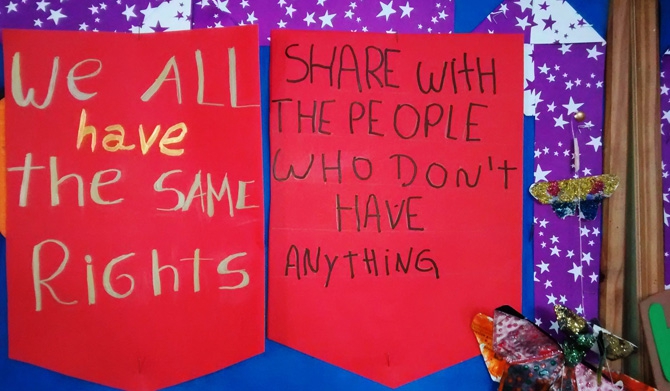 We ALL
have
the SAME
RiGhts
SHARE WitH
THE PEOPLE
WHO DON't
HAVE
ANyTHiNG